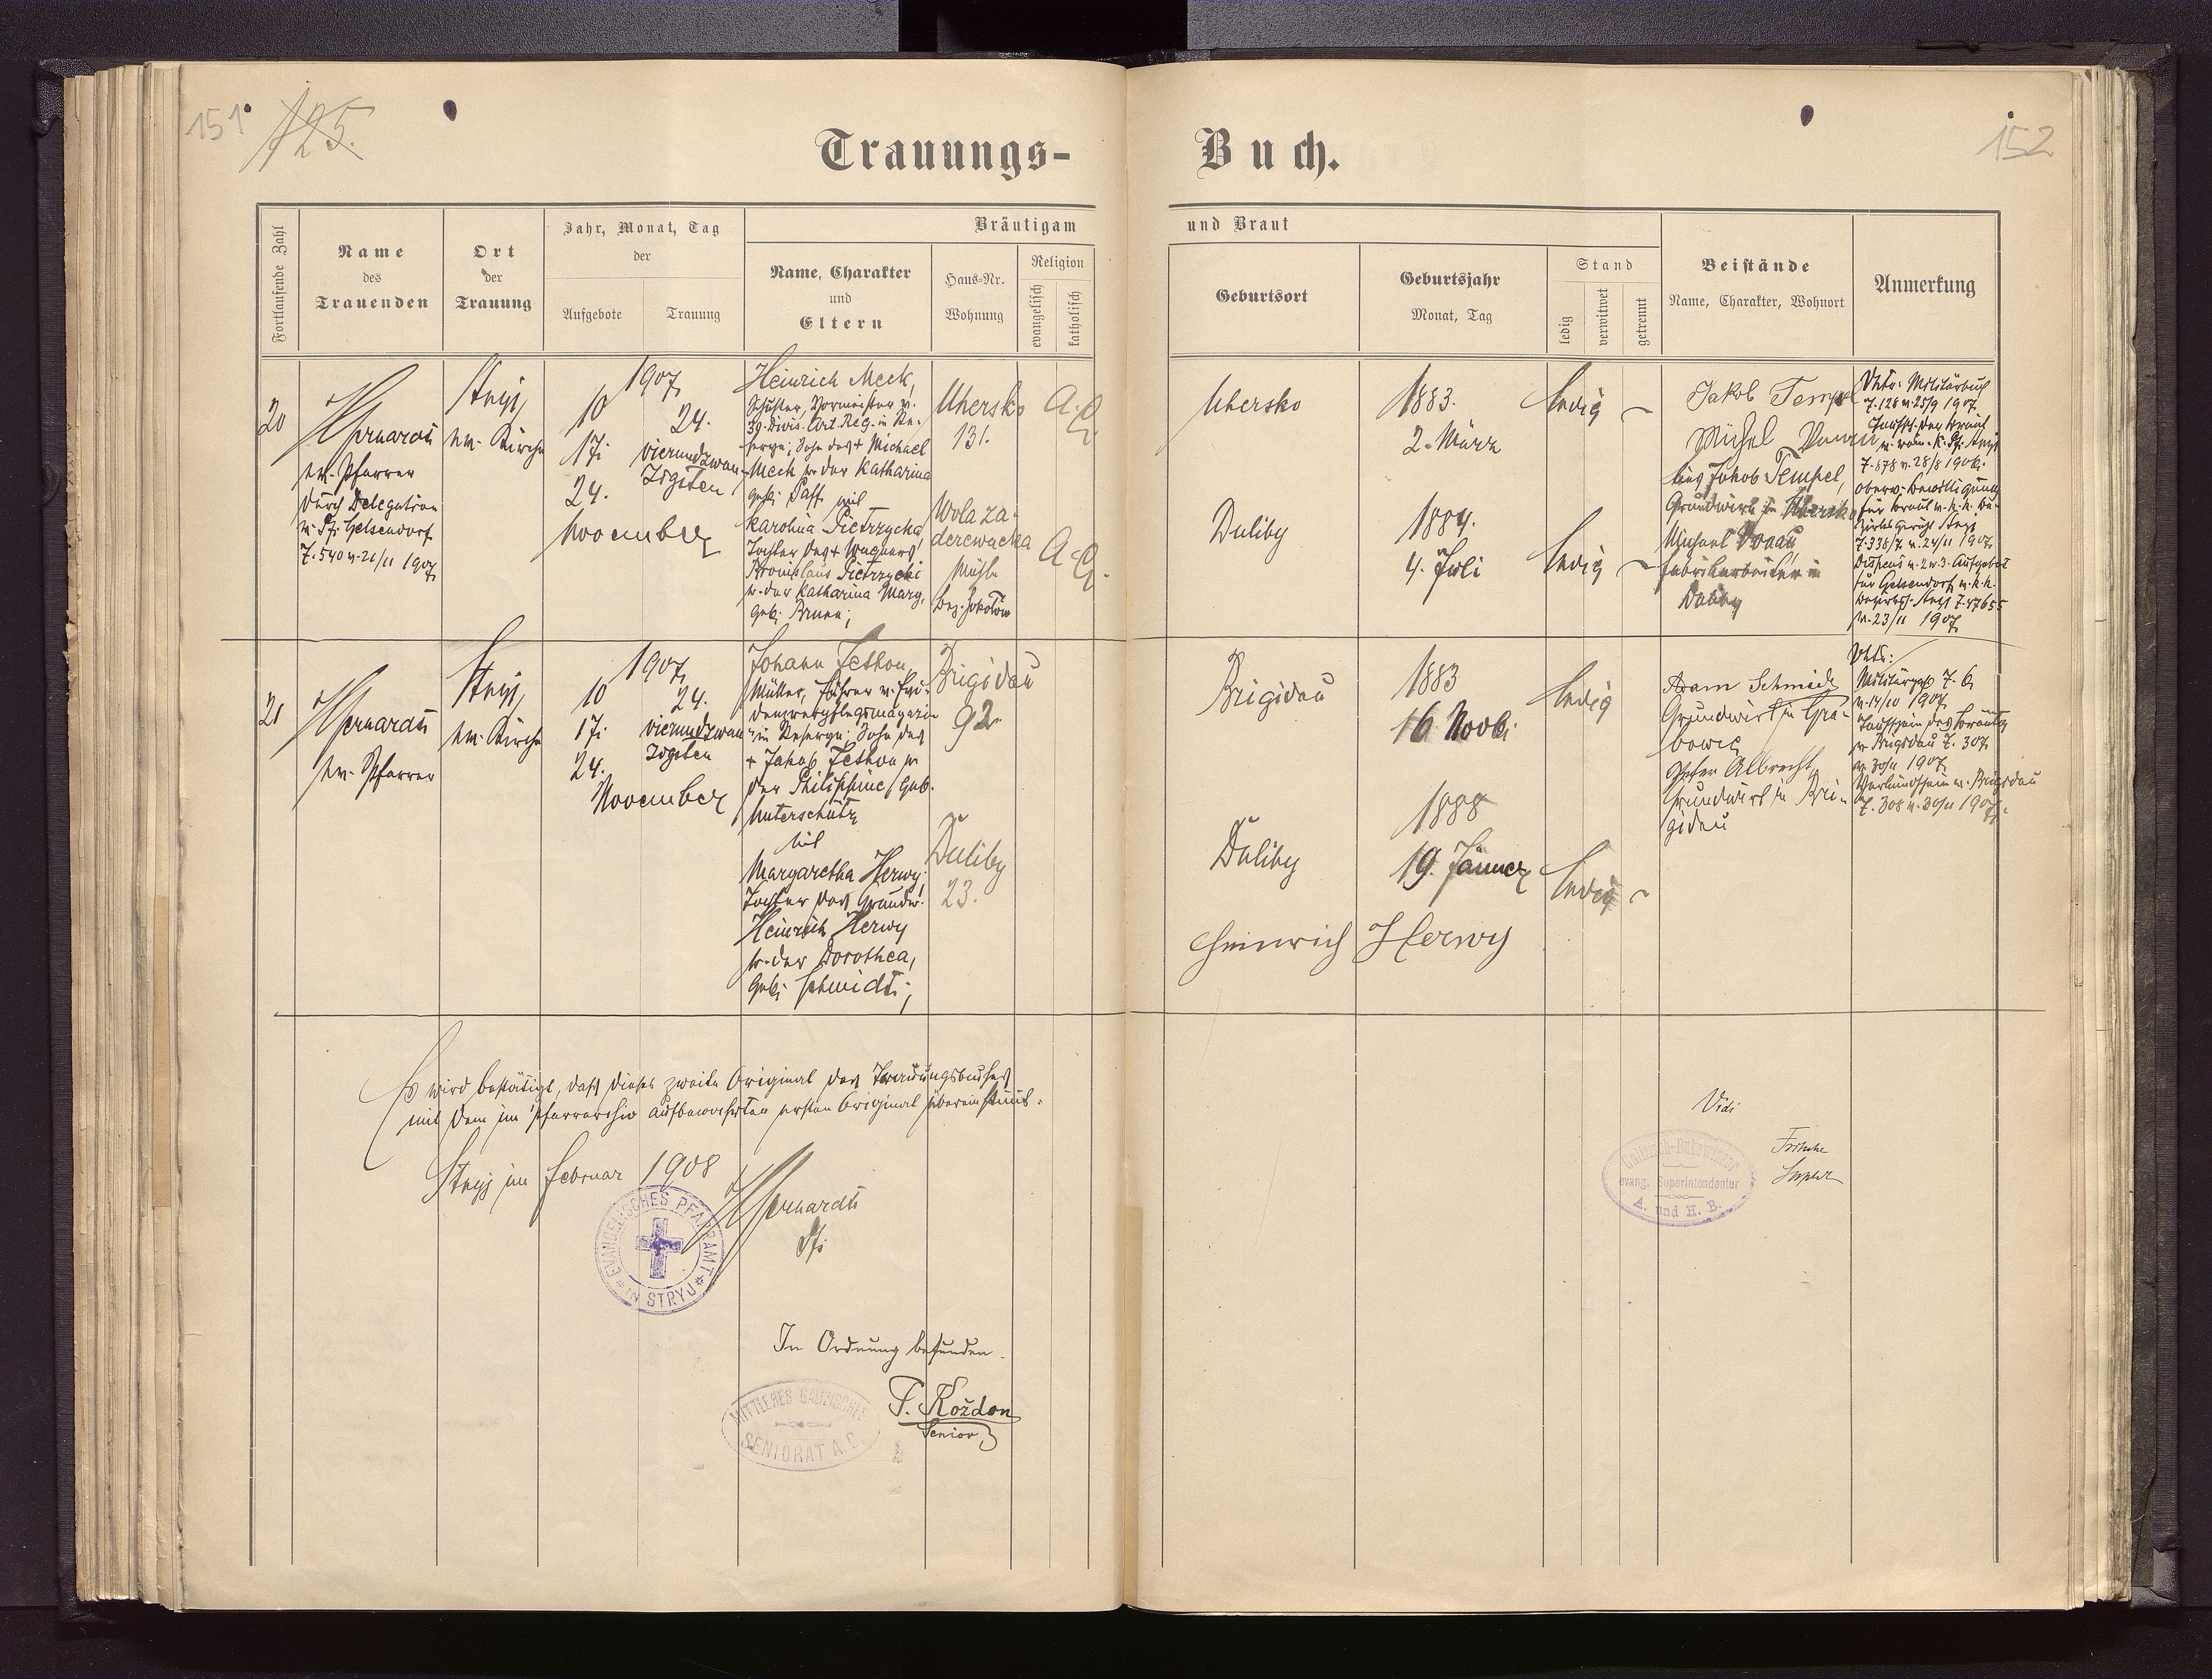 151
125.
152
Trauungs-
Buch.
Fortlaufende Zahl
Name
des
Trauenden
Ort
der
Trauung
Jahr, Monat, Tag
der
Aufgebote
Trauung
Bräutigam
Name, Charakter
und
Eltern
Haus-Nr.
Wohnung
Religion
evangelisch
katholisch
und Braut
Geburtsort
Geburtsjahr
Monat, Tag
Stand
ledig
verwitwet
getrennt
Beistände
Name, Charakter, Wohnort
Anmerkung
20
ev. Pfarrer
durch Delegation
v. Pf. Gelsendorf
Z. 540 v. 21/11 1907
Stryj,
ev. Kirche
1907
10
17.
24.
November
24.
vierundzwan-
zigsten
Heinrich Meck,
Schuster, Vormeister v.
Divis. Art. Reg. in Re-
serve; Sohn des + Michael
Meck u. der Katharina
geb. Paff mit
Karolina Pietrzycka
Tochter des + Wagners
Bronislaus Pietrzycki
u. der Katharina Marg.
geb. Brunn;
Uhersko
131.
Wola za-
derewacka
Bez.
A. C.
A. C.
Uhersko
Duliby
1883.
2. März
1884.
4. Juli
ledig
ledig
Jakob Tempel
Michel
Jakob Tempel,
Grundwirt in Uhersko
Michael
Fabriksarbeiter in
Duliby
Z. 128 v. 25/9 1907
Taufsch. der Braut
Z. 878 v. 28/8 1906.
oberv. Bewilligung
für Braut v. k. k. Be-
zirks Gericht Stryj
v. 24/11 1907
Dispens v. 2 u. 3. Aufgebot
für Gelsendorf v. k. k.
Stryj Z. 47655
v. 23/11 1907
21
ev. Pfarrer
Stryj,
ev. Kirche
1907
10
17.
24.
November
24.
vierundzwan-
zigsten
Johann
Müller, Führer v.
denverpflegsmagazin
in Reserve; Sohn des
+ Jakob
der Philippine, geb.
Unterschütz
mit
Margaretha Herwy,
Tochter des Grundw.
Heinrich Herwy
u. der Dorothea,
geb. Schmidt;
Brigidau
92
Duliby
23.
Brigidau
Duliby
1883
16 Novb.
1888
19. Jänner
ledig
ledig
Heinrich Herwy
Adam Schmidt
Grundwirt in Gra-
bowiec
Peter Albrecht,
Grundwirt in Bri-
gidau
Z. 6
v. 14/10 1907
Taufschein des Bräutig.
v. Brigidau Z. 307
1907
Verkündschein v. Brigidau
Z. 308 v. 30/11 1907.
Es wird bestätigt, daß dieses zweite Original des Trauungsbuches
mit dem im Pfarrarchiv aufbewahrten ersten Original übereinstimmt.
Stryj im Februar 1908
Pf.
EVANGELISCHES PFARRAMT
IN STRYJ
In Ordnung befunden.
MITTLERES GALIZISCHES
SENIORAT A. C.
F. Koždon
Senior
Vidi
Galizisch-Bukowinaer
evang. Superintendentur
A. und H. B.
Fritsche